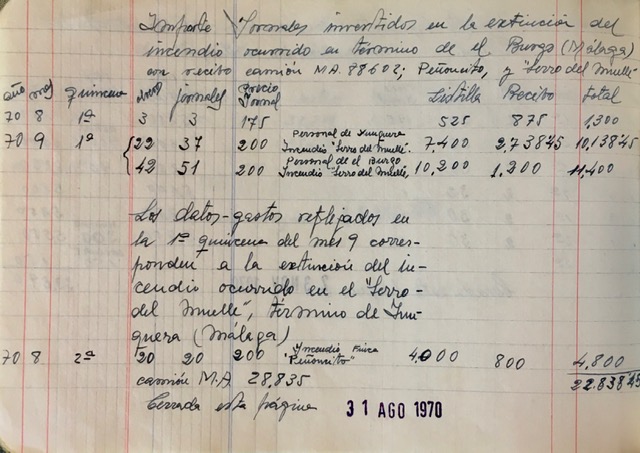 Importe Jornales invertidos en la extinción del
incendio ocurrido en término de el Burgo (Málaga)
con recibo camión MA. 88602; Peñoncito, y "Serro del Muelle"
año mes quincena obreros jornales Precio Jornal Listilla Recibo total
70 8 1ª 3 3 175 525 875 1,300
70 9 1ª 22 37 200 Personal de Yunquera Incendio "Serro del Muelle". 7,400 2,738'45 10,138'45
42 51 200 Personal de el Burgo Incendio "Serro del Muelle", 10,200 1.200 11,400
Los datos-gastos reflejados en
la 1ª quincena del mes 9 corres-
ponden a la extinción del in-
cendio ocurrido en el "Serro-
del Muelle", término de Yun-
quera (Málaga)
70 8 2ª 20 20 200 Incendio Finca "Peñoncito" 4.000 800 4,800
camión M.A 28,835 22.838'45
Cerrada esta página 31 AGO 1970